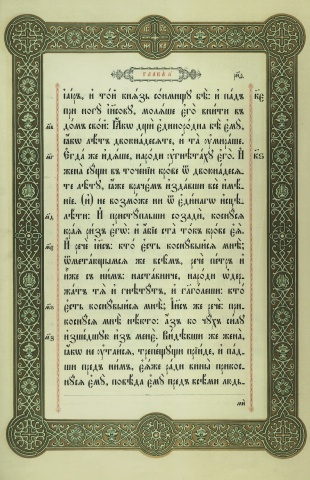 ГЛАВА и҃
рл҃д
їаі́ръ, и҆ то́й кнѧ́зь со́нмищу бѣ̀: и҆ па́дъ
при ногꙋ̀ і҆и҃сову, молѧ́ше є҆го̀ вни́ти въ
до́мъ сво́й: Ꙗ҆́кѡ дщѝ є҆диноро́дна бѣ̀ є҆мꙋ̀,
ꙗ҆́кѡ лѣ́тъ двоюна́десѧте, и҆ та̀ ᲂу҆мира́ше.
Є҆гда́ же и҆дѧ́ше, наро́ди ᲂу҆гнѣта́хꙋ є҆го̀. И҆
жена̀ сꙋ́щи въ точе́нїи кро́ве ѿ двоюна́десѧ-
те лѣ́тꙋ, ꙗ҆́же врачє́мъ и҆зда́вши всѐ и҆мѣ́-
нїе, (и҆) не возмо́же ни ѿ є҆ди́нагѡ и҆сцѣ-
лѣ́ти: И҆ пристꙋ́пльши созадѝ, коснꙋ́сѧ
кра́ѧ ри́зъ є҆гѡ̀: и҆ а҆́бїе ста̀ то́къ кро́ве є҆ѧ̀.
И҆ речѐ і҆и҃съ: кто̀ є҆́сть коснꙋ́выйсѧ мнѣ̀;
ѿмета́ющымсѧ же всѣ̑мъ, речѐ пе́тръ и҆
и҆̀же съ ни́мъ: наста́вниче, наро́ди ѡ҆держ-
жа́тъ тѧ̀ и҆ гнетꙋ́тъ, и҆ глаго́леши: кто̀
є҆́сть коснꙋ́выйсѧ мнѣ̀; І҆и҃съ же речѐ: при-
коснꙋ́сѧ мнѣ̀ нѣ́кто: а҆́зъ бо чꙋ́хъ си́лꙋ
и҆зше́дшꙋю и҆з̾ менє̀. Ви́дѣвши же жена̀,
ꙗ҆́кѡ не ᲂу҆таи́сѧ, трепе́щꙋщи прїи́де, и҆ па́д-
ши пред̾ ни́мъ, є҆ѧ́же ра́ди вины̀ прикос-
нꙋ́сѧ є҆мꙋ̀, повѣ́да є҆мꙋ̀ пред̾ всѣ́ми людь-
мѝ